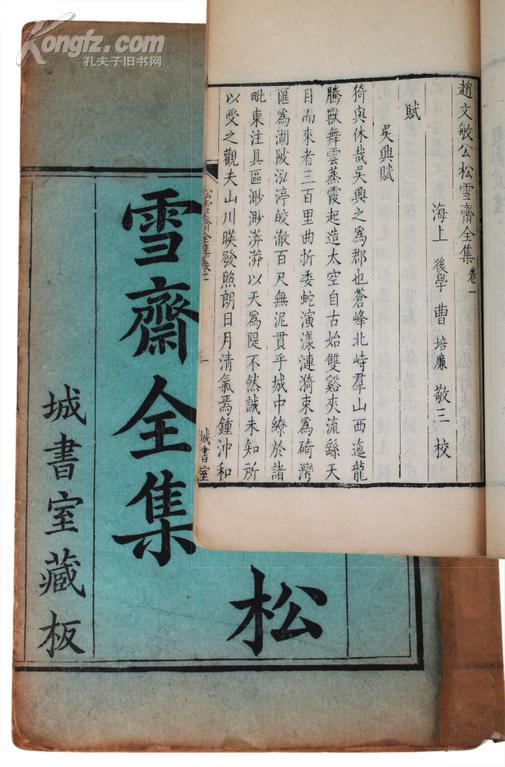 Kongfz.com
孔夫子旧书网
趙文敏公松雪齋全集卷一
海上 後學 曹培廉 敬三 校
賦
吳興賦
猗與休哉吳興之爲郡也蒼峰北峙羣山西迤龍
騰獸舞雲蒸霞起造太空自古始雙谿夾流繇天
目而來者三百里曲折委蛇演漾漣漪束爲碕灣
匯爲湖陂泓渟皎澈百尺無泥貫乎城中繚於諸
毗東注具區渺渺漭漭以天爲隄不然誠未知所
以受之觀夫山川暎發照朗日月清氣焉鍾沖和
松雪齋全集卷一
一
城書室
松
雪齋全集
城書室藏板